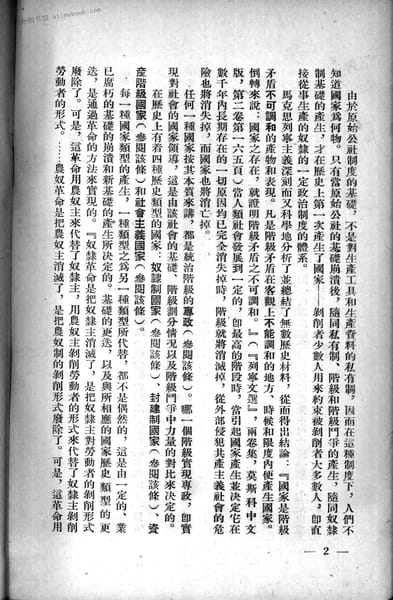 由於原始公社制度的基礎，不是對生產工具和生產資料的私有制，因而在這種制度下，人們不
知道國家爲何物。只有當原始公社的基礎崩潰後，隨同私有制、階級和階級鬥爭的產生，隨同奴隸
制基礎的產生，才在歷史上第一次產生了國家——剝削者少數人用來約束被剝削者大多數人，卽直
接從事生產的奴隸的一定政治制度的體系。
馬克思列寧主義深刻而又科學地分析了並總結了無數歷史材料，從而得出結論：『國家是階級
矛盾不可調和的產物和表現。凡是階級矛盾在客觀上不能調和的地方、時候和限度內便產生國家。
倒轉來說：國家之存在，就證明階級矛盾之不可調和。』（『列寧文選』，兩卷集，莫斯科中文
版，第二卷第一六五頁）當人類社會發展到一定的，卽最高的階段時，當引起國家產生並決定它在
數千年內長期存在的一切原因均已完全消失掉時，階級就將消滅掉，從外部侵犯共產主義社會的危
險也將消失掉，而國家也將消亡掉。
任何一種國家按其本質來講，都是統治階級的專政（參閱該條）。哪一個階級實現專政，卽實
現對社會的國家領導，這是由該社會的基礎、階級劃分情况以及階級鬥爭中力量的對比來決定的。
在歷史上有着四種歷史類型的國家：奴隸制國家（參閱該條）、封建制國家（參閱該條）、資
產階級國家（參閱該條）和社會主義國家（參閱該條）。
每一種國家類型的產生，一種類型之爲另一種類型所代替，都不是偶然的，這是由一定的、業
已腐朽的基礎的崩潰和新基礎的產生所決定的。基礎的更迭，以及與所相應的國家歷史類型的更
迭，是通過革命的方法來實現的。『奴隸革命是把奴隸主消滅了，是把奴隸主對勞動者的剝削形式
廢除了。可是，這革命用農奴主來代替了奴隸主，用農奴主剝削勞動者的形式來代替了奴隸主剝削
勞動者的形式。……農奴革命是把農奴主消滅了，是把農奴制的剝削形式廢除了。可是，這革命用
— 2 —